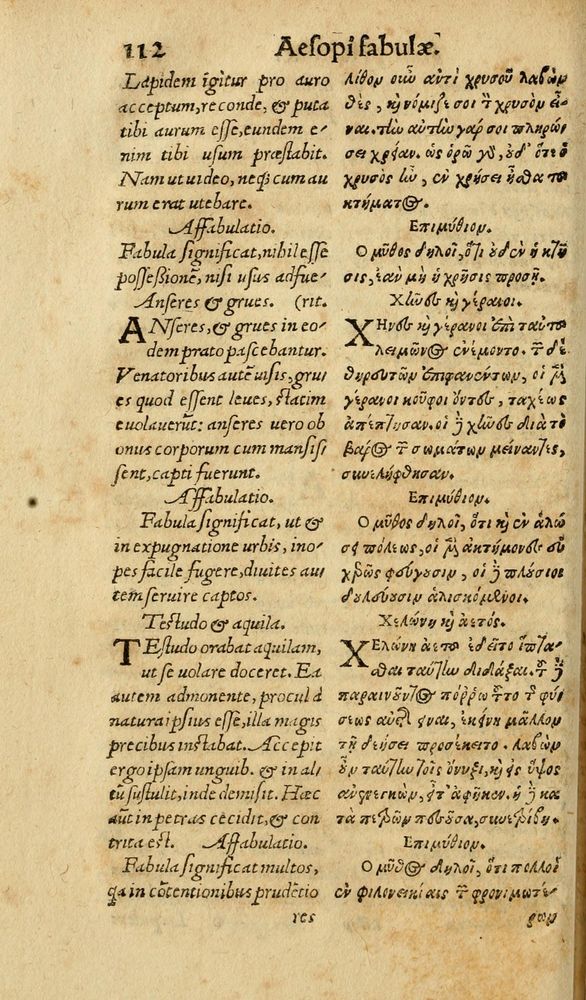 112 Aesopi fabulæ.
Lapidem igitur pro auro
acceptum, reconde, & puta
tibi aurum esse, eundem e-
nim tibi usum præstabit.
Nam ut uideo, neq; cum au
rum erat utebare.
Affabulatio.
Fabula significat, nihil esse
possessionē, nisi usus adfue-
Anseres & grues. (rit.
ANseres, & grues in eo-
dem prato pascebantur.
Venatoribus autē uisis, gru-
es quod essent leues, statim
euolauerūt: anseres uero ob
onus corporum cum mansis-
sent, capti fuerunt.
Affabulatio.
Fabula significat, ut &
in expugnatione urbis, ino-
pes facile fugere, diuites au-
tem seruire captos.
Testudo & aquila.
TEstudo orabat aquilam,
ut se uolare doceret. Ea
autem admonente, procul à
natura ipsius esse, illa magis
precibus instabat. Accepit
ergo ipsam unguib. & in al-
tū sustulit, inde demisit. Hæc
aut in petras cecidit, & con
trita est. Affabulatio.
Fabula significat multos,
qa in cōtentionibus prudētio
res
λίθον οὖν ἀντὶ χρυσοῦ λαβὼν
θὲς, καὶ νόμιζέ σοι τὸν χρυσὸν εἶ-
ναι. τὴν αὐτὴν γάρ σοι πληρώ-
σει χρείαν. ὡς ὁρῶ γὰρ, οὐδ' ὅτε ὁ
χρυσὸς ἦν, ἐν χρήσει ἦσθα τοῦ
κτήματος.
Επιμύθιον.
Ο μῦθος δηλοῖ, ὅτι οὐδὲν ἡ κτῆ
σις, ἐὰν μὴ ἡ χρῆσις προσῇ.
Χῆνες καὶ γέρανοι.
ΧΗνες καὶ γέρανοι ἐπὶ ταὐτοῦ
λειμῶνος ἐνέμοντο. τῶν δὲ
θηρευτῶν ἐπιφανέντων, οἱ μὲν
γέρανοι κοῦφοι ὄντες, ταχέως
ἀπέπτησαν. οἱ δὲ χῆνες διὰ τὸ
βάρος τῶν σωμάτων μείναντες,
συνελήφθησαν.
Επιμύθιον.
Ο μῦθος δηλοῖ, ὅτι καὶ ἐν ἁλώ
σει πόλεως, οἱ μὲν ἀκτήμονες εὐ
χερῶς φεύγουσιν, οἱ δὲ πλούσιοι
δουλεύουσιν ἁλισκόμενοι.
Χελώνη καὶ ἀετός.
ΧΕλώνη ἀετοῦ ἐδεῖτο ἵπτα-
σθαι ταύτην διδάξαι. τοῦ δὲ
παραινοῦντος πόρρω τοῦτο τῆς φύ
σεως αὐτῆς εἶναι, ἐκείνη μᾶλλον
τῇ δεήσει προσέκειτο. λαβὼν
οὖν ταύτην τοῖς ὄνυξι, καὶ εἰς ὕψος
ἀνενεγκὼν, εἶτ' ἀφῆκεν. ἡ δὲ κα
τὰ πετρῶν πεσοῦσα, συνετρίβη.
Επιμύθιον.
Ο μῦθος δηλοῖ, ὅτι πολλοὶ
ἐν φιλονεικίαις τῶν φρονιμωτέ-
ρων